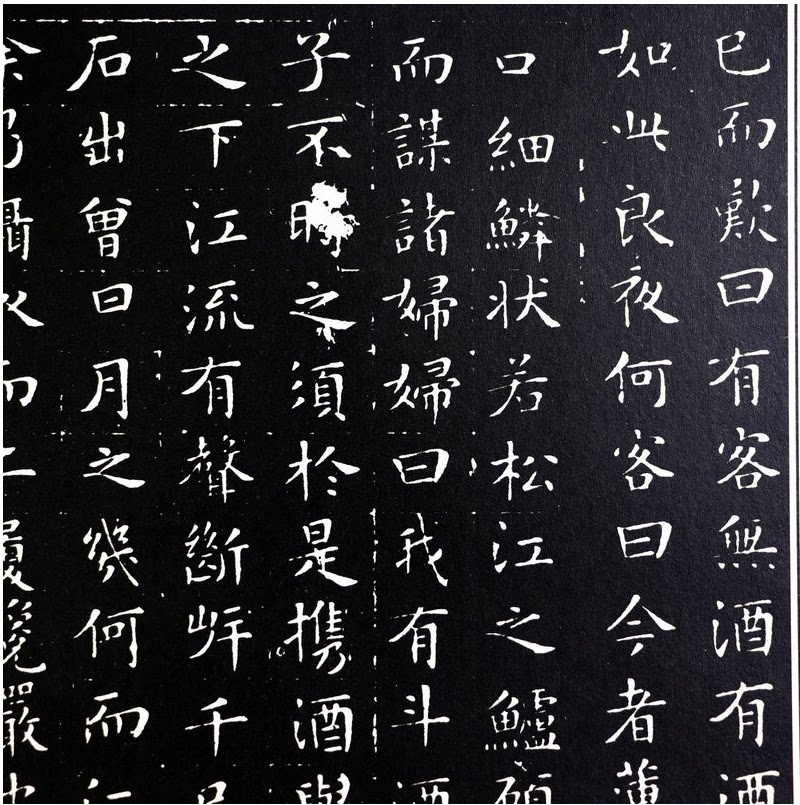 已而歎曰有客無酒有酒
如此良夜何客曰今者薄
口細鱗狀若松江之鱸顧
而謀諸婦婦曰我有斗酒
子不時之須於是攜酒與
之下江流有聲斷岸千尺
石出曾日月之幾何而江
余乃攝衣而上履巉巖